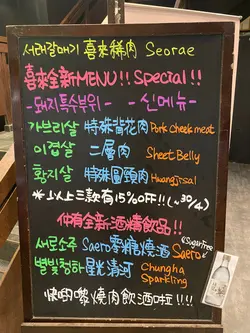 서래갈매기 喜來稀肉 Seorae
喜來全新MENU!! Special!!
-돼지특수부위- -신메뉴-
가브리살 特殊背花肉 Pork cheek meat
이겹살 二層肉 Sheet Belly
황지살 特殊圓頸肉 Huangjisal
*以上三款有15%OFF!! (~30/4)
仲有全新酒精飲品!!
새로소주 Saero零糖燒酒 Saero (Sugarfree)
별빛청하 星光清河 Chungha Sparkling
快啲嚟燒肉飲酒啦!!!!